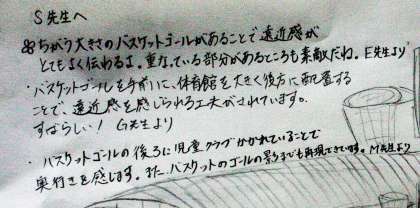 S先生へ
※ちがう大きさのバスケットゴールがあることで遠近感が
とてもよく伝わるよ。重なている部分があるところも素敵だね。E先生より
・バスケットゴールを手前に、体育館を大きく後方に配置する
ことで、遠近感を感じられる工夫がされています。
すばらしい! G先生より
・バスケットゴールの後ろに児童クラブがかかれていることで
奥行きを感じます。また、バスケットのゴールの影までも再現できています。M先生より